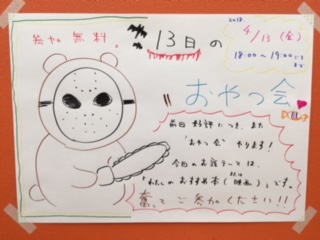 参加無料。
13日の
2018.
4/13 (金)
18:00〜19:00
おやつ会
前回好評につき、また
"おやつ会" やります!
今回のお話テーマは、
「わたしのおすすめ本(または映画)」です。
奮ってご参加ください!!